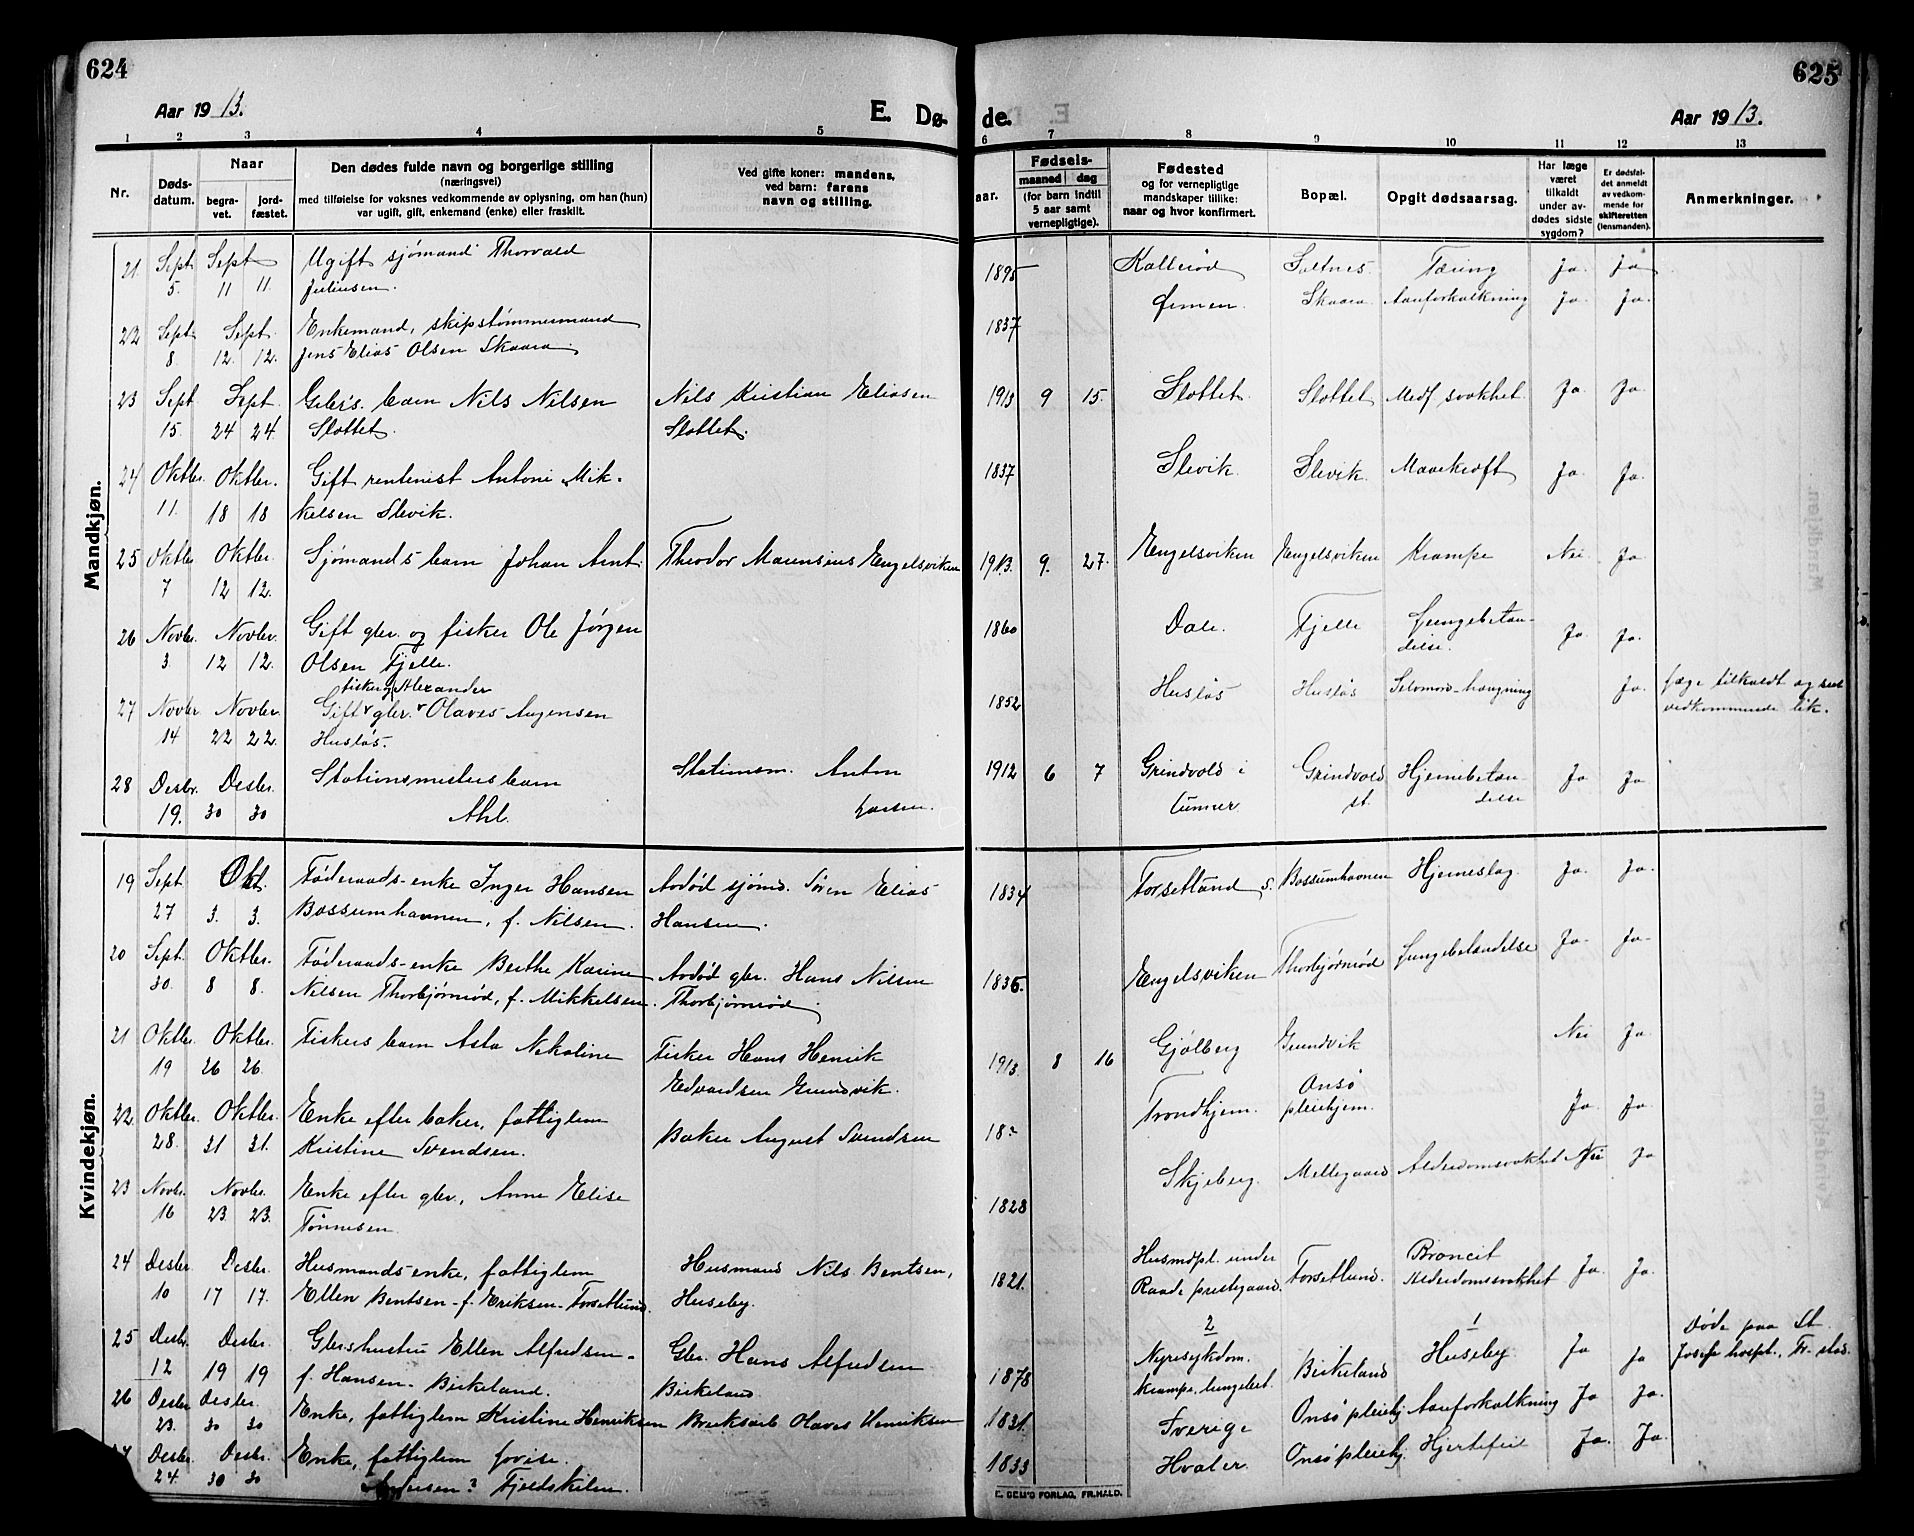 624
625
Aar 1913.
E. Døde.
Aar 1913.
1 2 3 4 5 6 7 8 9 10 11 12 13
Nr.
Dødsdatum.
Naar
begravet.
jordfæstet.
Den dødes fulde navn og borgerlige stilling
(næringsvei)
med tilføielse for voksnes vedkommende av oplysning, om han (hun)
var ugift, gift, enkemand (enke) eller fraskilt.
Ved gifte koner: mandens,
ved barn: farens
navn og stilling.
aar.
Fødsels-
maaned dag
(for barn indtil
5 aar samt
vernepligtige).
Fødested
og for vernepligtige
mandskaper tillike:
naar og hvor konfirmert.
Bopæl.
Opgit dødsaarsag.
Har læge
været
tilkaldt
under av-
dødes sidste
sygdom?
Er dødsfal-
det anmeldt
av vedkom-
mende for
skifteretten
(lensmanden).
Anmerkninger.
Mandkjøn.
21 Sept Sept Ugift sjømand Thorvald 1895 Kallerød Saltnes Tæring Ja Ja
5. 11 11. Juliussen.
22 Sept Sept. Enkemand, skipstømmermand 1837 Ørmen Skaara Aareforkalkning Ja. Ja.
8 12. 12. Jens Elias Olsen Skaara
23 Sept Sept Gbrs. barn Nils Nilsen Nils Kristian Eliasen 1913 9 15. Slottet Slottet Medf. svakhet Ja Ja.
15. 24 24. Slottet. Slottet.
24 Oktbr. Oktbr. Gift rentenist Antoni Mik- 1837 Slevik. Slevik. Mavekræft Ja Ja.
11. 18 18 kelsen Slevik.
25 Oktbr. Oktbr. Sjømands barn Johan Arnt. Theodor Maurensius Engelsviken 1913. 9. 27. Engelsviken Engelsviken Krampe Nei. Ja
7 12 12.
26 Novbr. Novbr. Gift gbr. og fisker Ole Jørgen 1860 Dale. Fjelle Lungebetæn- Ja Ja.
3. 12 12. Olsen Fjelle. delse.
fisker Alexander
27 Novbr Novbr. Gift gbr. Olaves Augensen 1852 Husløs Husløs Selvmord-hængning Ja. Læge tilkaldt og
14 22 22. Husløs. vedkommende lik.
28 Desbr. Desbr. Stationsmesters barn Stationsm. Anton 1912 6 7 Grindvold i Grindvold Hjernebetæn- Ja Ja
19. 30 30 Ahl. Larsen. Lunner st. delse
Kvindekjøn.
19 Sept Okt. Føderaads-enke Inger Hansen Avdød sjømd. Søren Elias 1834 Torsetlund s. Bossumhavnen Hjerneslag Ja. Ja.
27 3. 3. Bossumhavnen, f. Nilsen. Hansen.
20 Sept. Oktbr. Føderaads-enke Berthe Karine Avdød gbr. Hans Nilsen 1836. Engelsviken Thorbjørnrød Lungebetændelse Ja. Ja.
30. 8 8. Nilsen Thorbjørnrød, f. Mikkelsen. Thorbjørnrød
21 Oktbr. Oktbr. Fiskers barn Asta Nikoline Fisker Hans Henrik 1913. 8 16 Gjølberg Grundvik Nei Ja
19 26 26. Edvardsen Grundvik.
22 Oktbr. Oktbr. Enke efter baker, fattiglem Baker August Svendsen 18? Trondhjem. Onsø pleiehjem. Ja. Ja
28. 31 31. Kristine Svendsen.
23 Novbr. Novbr. Enke efter gbr., Anne Elise 1828 Skjeberg. Mellegaard Alderdomssvakhet Nei Ja
16 23. 23. Tønnesen
24 Desbr Desbr. Husmands-enke, fattiglem Husmand Nils Bentsen, 1821. Husmdpl. under Torsetlund. Broncit Ja. Ja.
10 17 17. Ellen Bentsen-f. Eriksen-Torsetlund. Huseby. Raade prestegaard. Alderdomssvakhet
25 Desbr Desbr. Gbrshustru Ellen Alfredsen- Gbr. Hans Alfredsen 1878 2 Nyresykdom. Birkeland 1 Huseby Ja Ja Døde paa St.
12 19 19 f. Hansen-Birkeland. Birkeland Krampe, lungebet. Josefs hospt., Fr.stad.
26 Desbr Desbr. Enke, fattiglem Kristine Henriksen Bruksarb Olaves Henriksen 1831. Sverige Onsø pleiehj Aareforkalkning Ja Ja.
23. 30 30
Desbr. Desbr. Enke, fattiglem Lovise 1833 Hvaler. Onsø pleiehj. Hjertefeil Ja. Ja.
24. 30 30 Andersen? Fjeldskilen.
E. SEM'S FORLAG, FR.HALD.